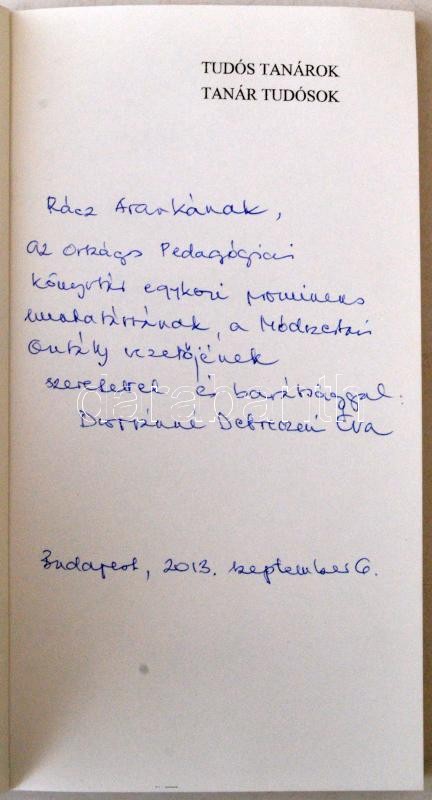 TUDÓS TANÁROK
TANÁR TUDÓSOK
Rácz Arankának,
az Országos Pedagógiai
Könyvtár egykori prominens
munkatársának, a Módszertani
Osztály vezetőjének
szeretettel és barátsággal:
Debreczeni Éva
Budapest, 2013. szeptember 6.
darabanth